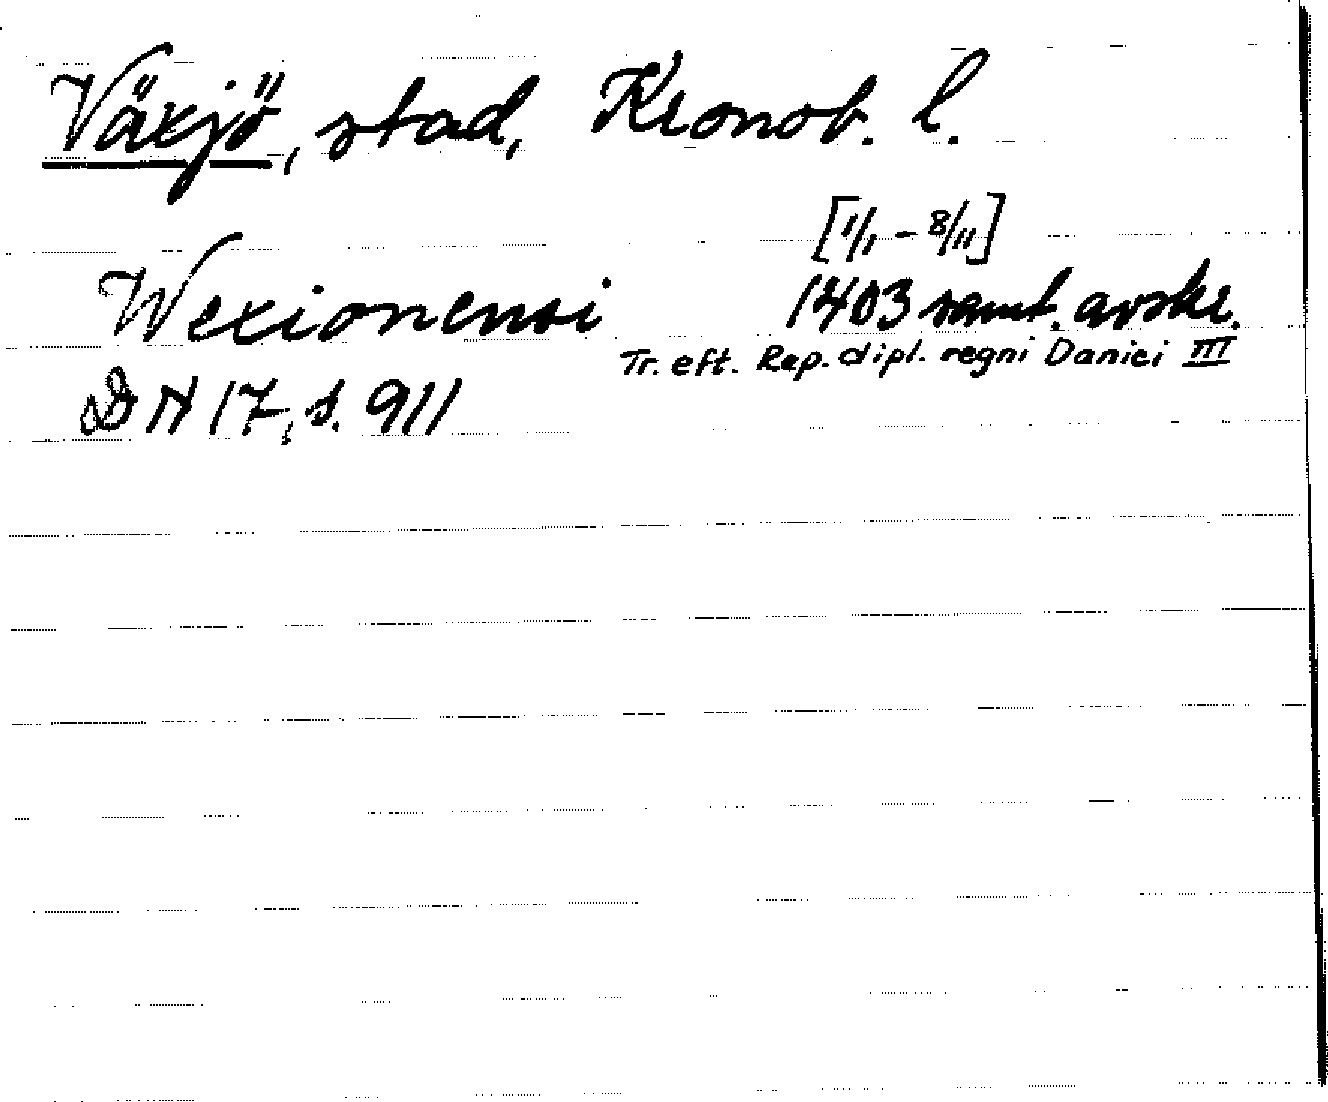 Växjö, stad, Kronob. l.
[1/1 - 8/11]
Wexionensi 1403 samt. avskr.
Tr. eft. Rep. dipl. regni Danici III
DN 17, s. 911